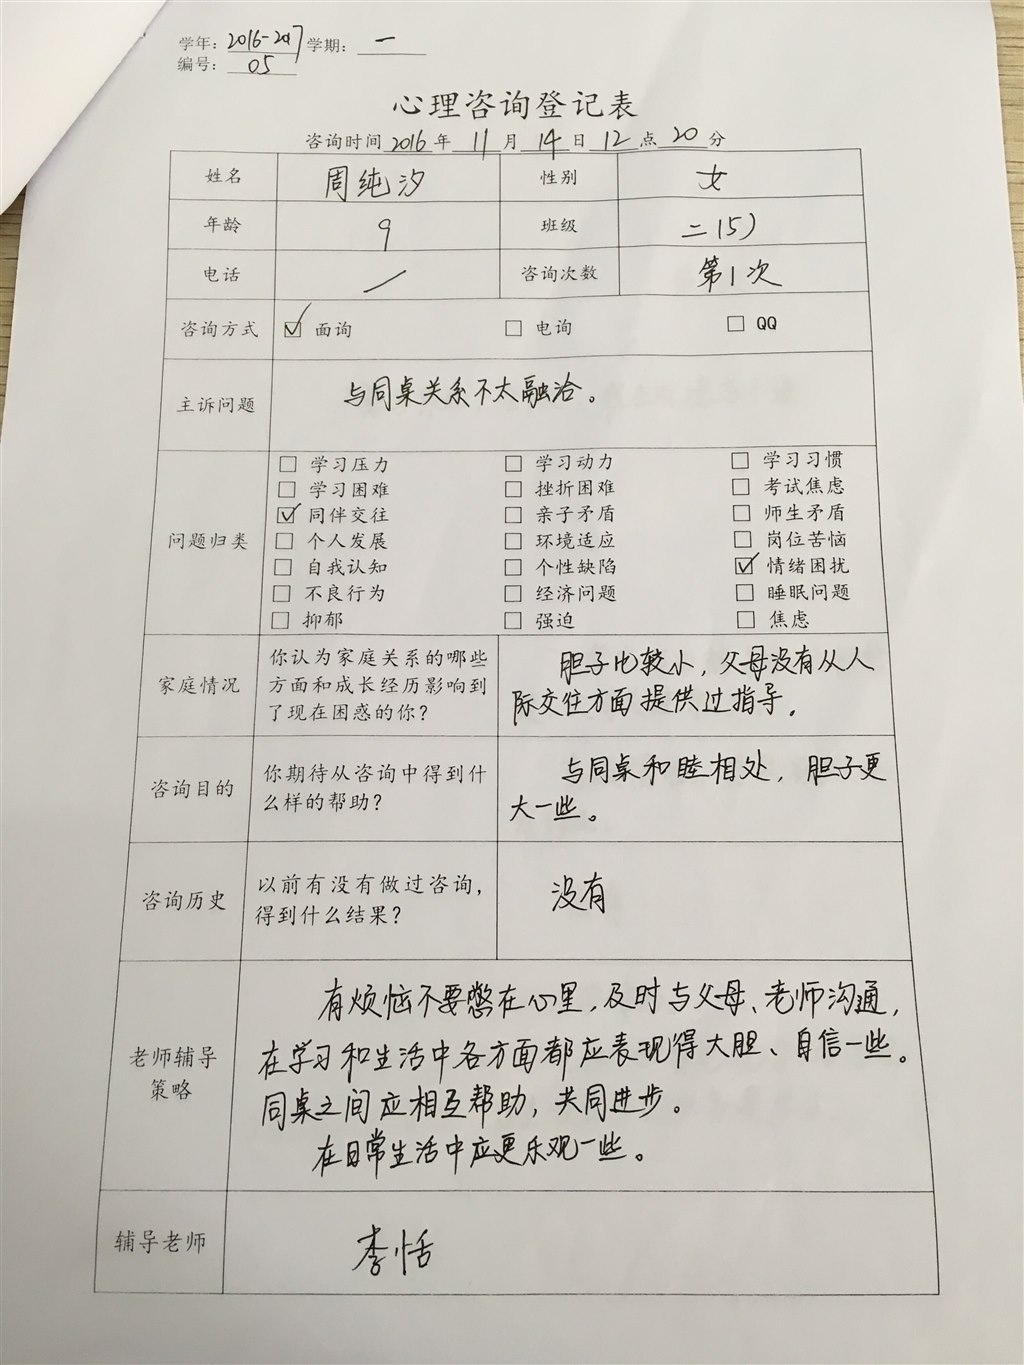 学年：2016-2017 学期：一
编号：05
心理咨询登记表
咨询时间 2016 年 11 月 14 日 12 点 20 分
姓名 周纯汐 性别 女
年龄 9 班级 二（5）
电话 / 咨询次数 第1次
咨询方式 ☑ 面询 □ 电询 □ QQ
主诉问题 与同桌关系不太融洽。
问题归类
□ 学习压力 □ 学习动力 □ 学习习惯
□ 学习困难 □ 挫折困难 □ 考试焦虑
☑ 同伴交往 □ 亲子矛盾 □ 师生矛盾
□ 个人发展 □ 环境适应 □ 岗位苦恼
□ 自我认知 □ 个性缺陷 ☑ 情绪困扰
□ 不良行为 □ 经济问题 □ 睡眠问题
□ 抑郁 □ 强迫 □ 焦虑
家庭情况
你认为家庭关系的哪些
方面和成长经历影响到
了现在困惑的你？
胆子比较小，父母没有从人
际交往方面提供过指导。
咨询目的
你期待从咨询中得到什
么样的帮助？
与同桌和睦相处，胆子更
大一些。
咨询历史
以前有没有做过咨询，
得到什么结果？
没有
老师辅导
策略
有烦恼不要憋在心里，及时与父母、老师沟通，
在学习和生活中各方面都应表现得大胆、自信一些。
同桌之间应相互帮助，共同进步。
在日常生活中应更乐观一些。
辅导老师 李恬